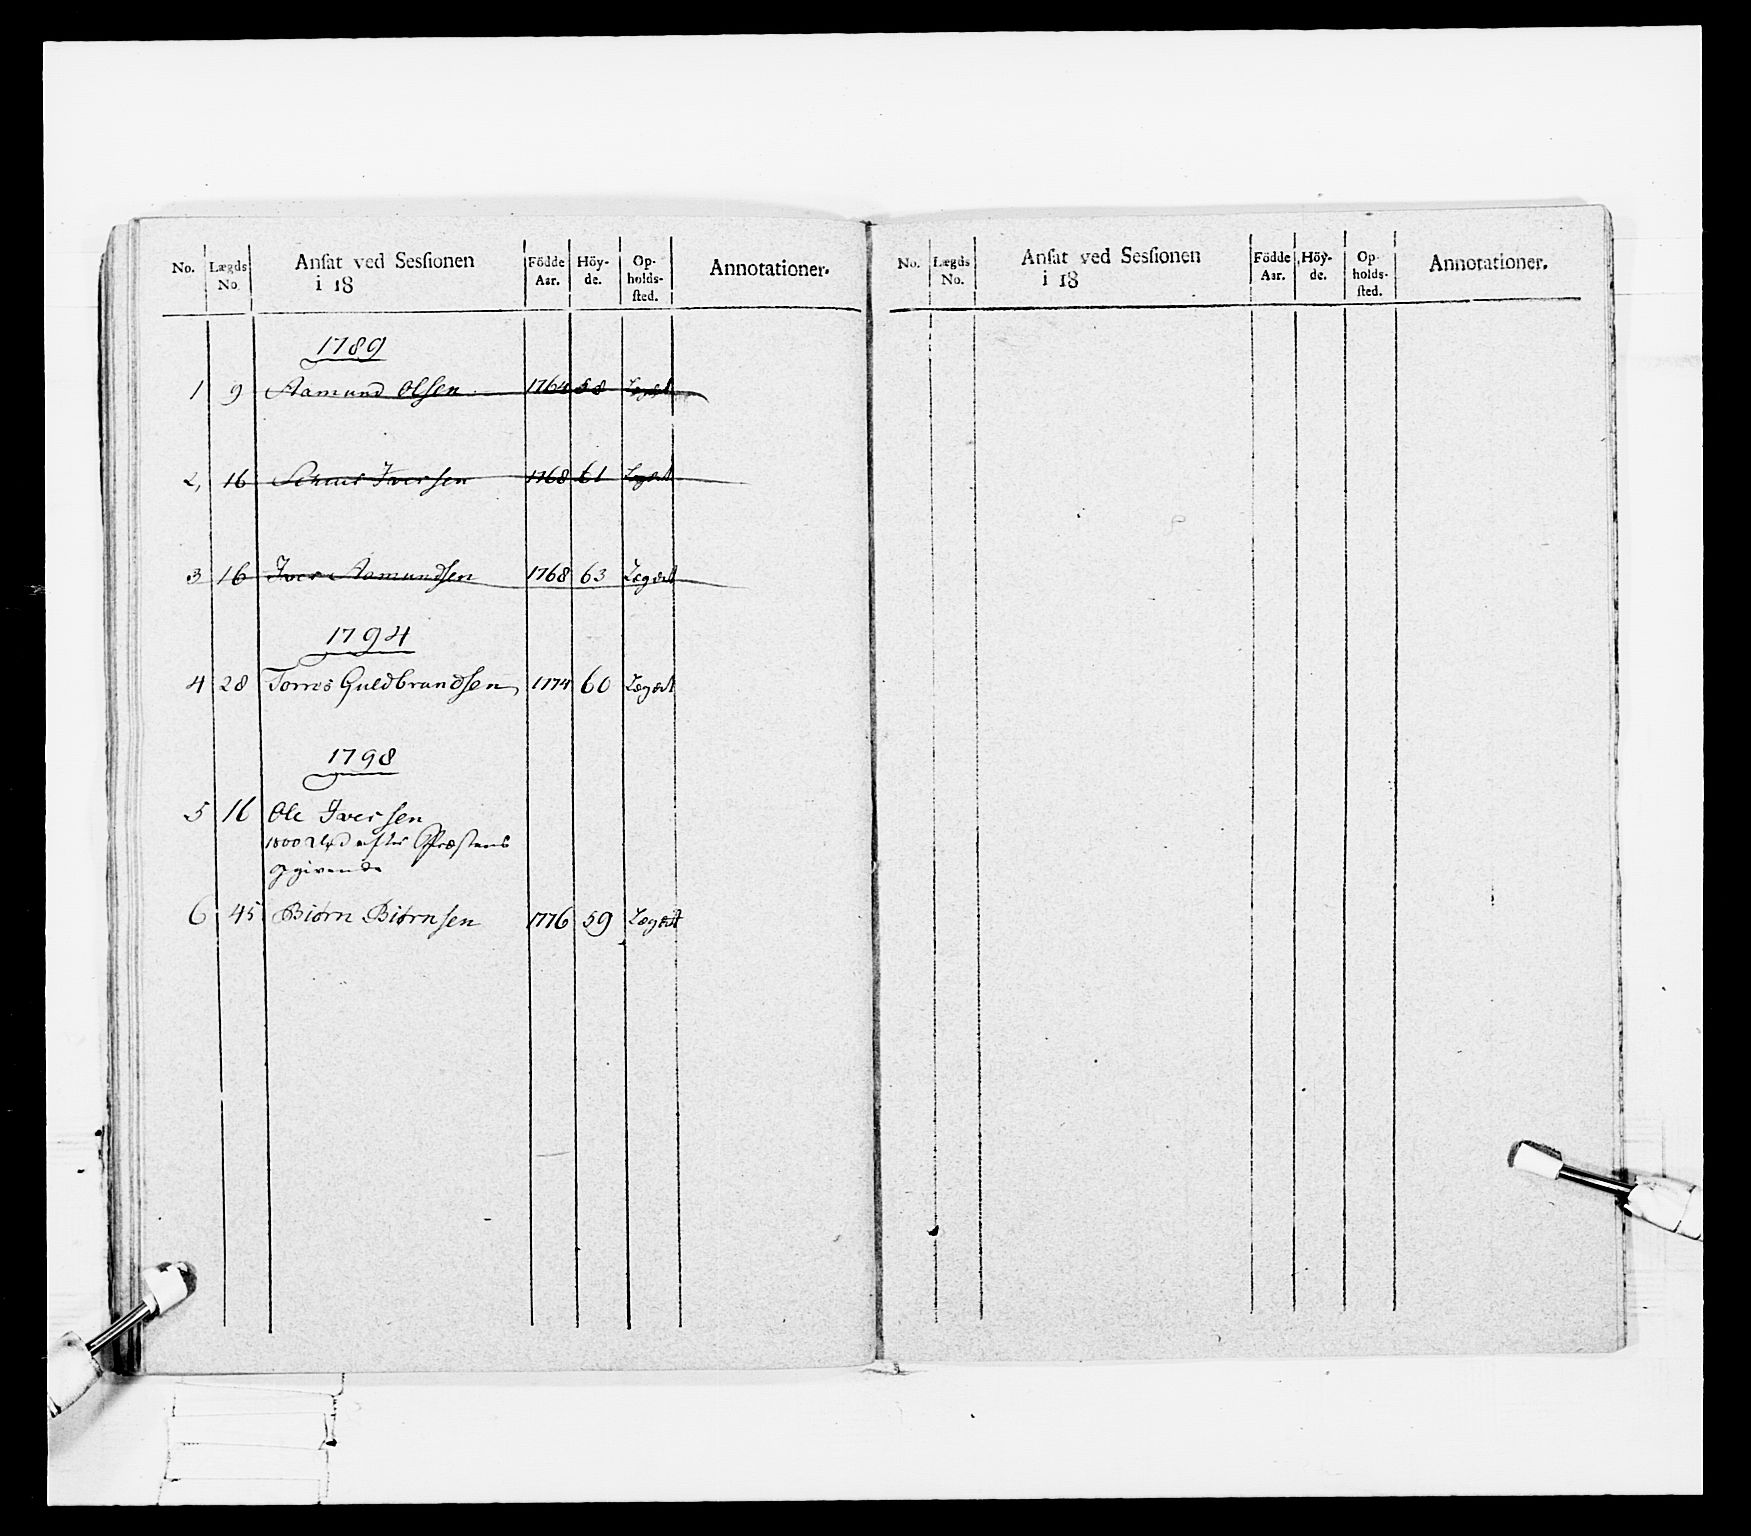 No. Lægds No. Ansat ved Sessionen i 18 Födde Aar. Höy-de. Op-holds-sted. Annotationer.
1789
1 9 Aamund Olsen 1764 58 Lægdet
2, 16 Iversen 1768 61 Lægdet
3 16 Iver Aamundsen 1768 63 Lægdet
1794
4 28 Torres Guldbrandsen 1774 60 Lægdet
1798
5 16 Ole Iversen
1800 død efter Præstens
opgivende
6 45 Biørn Biørnsen 1776 59 Lægdet
No. Lægds No. Ansat ved Sessionen i 18 Födde Aar. Höy-de. Op-holds-sted. Annotationer.